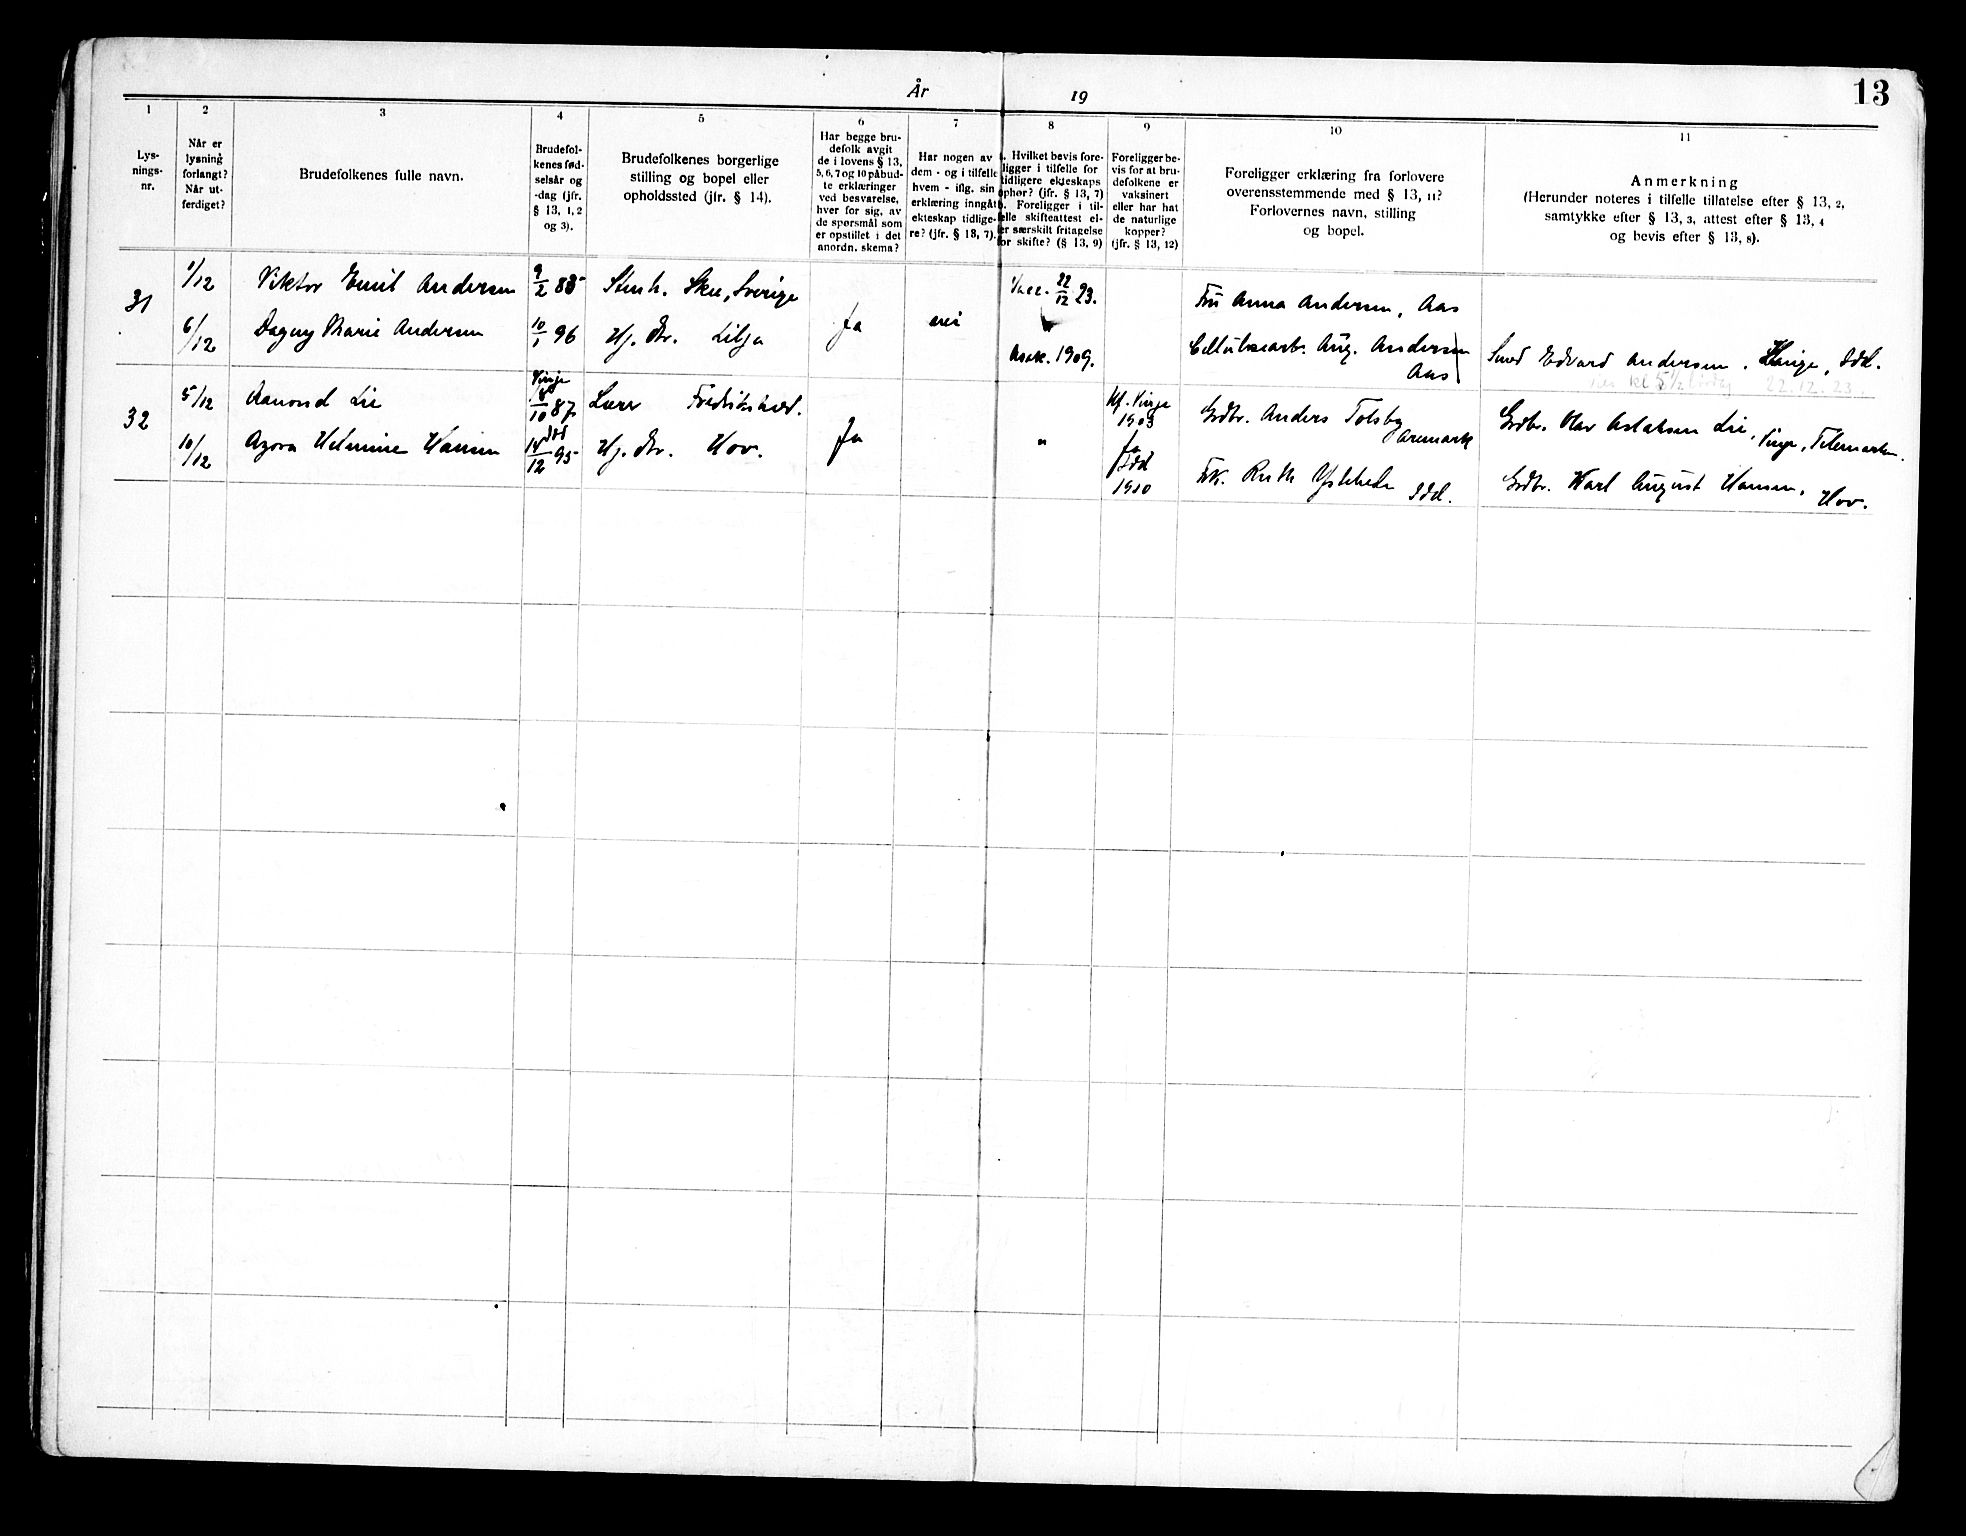 År 19
13
1
Lys-
nings-
nr.
2
Når er
lysning
forlangt?
Når ut-
ferdiget?
3
Brudefolkenes fulle navn.
4
Brudefol-
kenes fød-
selsår og
-dag (jfr.
§ 13, 1, 2
og 3).
5
Brudefolkenes borgerlige
stilling og bopel eller
opholdssted (jfr. § 14).
6
Har begge bru-
defolk avgit
de i lovens § 13,
5, 6, 7 og 10 påbud-
te erklæringer
ved besvarelse,
hver for sig, av
de spørsmål som
er opstillet i det
anordn. skema?
7
Har nogen av
dem - og i tilfelle
hvem - iflg. sin
erklæring inngått
ekteskap tidlige-
re? (jfr. § 18, 7).
8
Hvilket bevis fore-
ligger i tilfelle for
tidligere ekteskaps
ophør? (jfr. § 13, 7)
Foreligger i til-
felle skifteattest el-
ler særskilt fritagelse
for skifte? (§ 13, 9)
9
Foreligger be-
vis for at bru-
defolkene er
vaksinert
eller har hat
de naturlige
kopper?
(jfr. § 13, 12)
10
Foreligger erklæring fra forlovere
overensstemmende med § 13, 11?
Forlovernes navn, stilling
og bopel.
11
Anmerkning
(Herunder noteres i tilfelle tillatelse efter § 13, 2,
samtykke efter § 13, 3, attest efter § 13, 4
og bevis efter § 13, 8).
31
1/12
Viktor Emil Andersen
9/2 85
Stenh. Skee, Sverige
6/12
Dagny Marie Andersen
10/1 96
Hj. dtr. Lilja
Ja
nei
Vacc. 22/12 23.
Arek. 1909.
Fru Anna Andersen, Aas
Cellulosearb. Aug. Andersen
Aas
Smed Edvard Andersen, Hauge, Idd.
kl 5 1/2 lördag 22.12.23.
32
5/12
Aamond Lie
Vinje
8/10 87
Lærer Fredrikshald.
10/12
Azora Helmine Hansen
Idd
14/12 95
Hj. dtr. Hov.
Ja
"
Kf. Vinje
1903
Ja
Idd
1910
Grdbr. Anders Tolsby
Aremark
Frk. Ruth Ystehede Idd.
Grdbr. Olav Aslaksen Lie,
Vinje, Telemarken.
Grdbr. Karl August Hansen,
Hov.